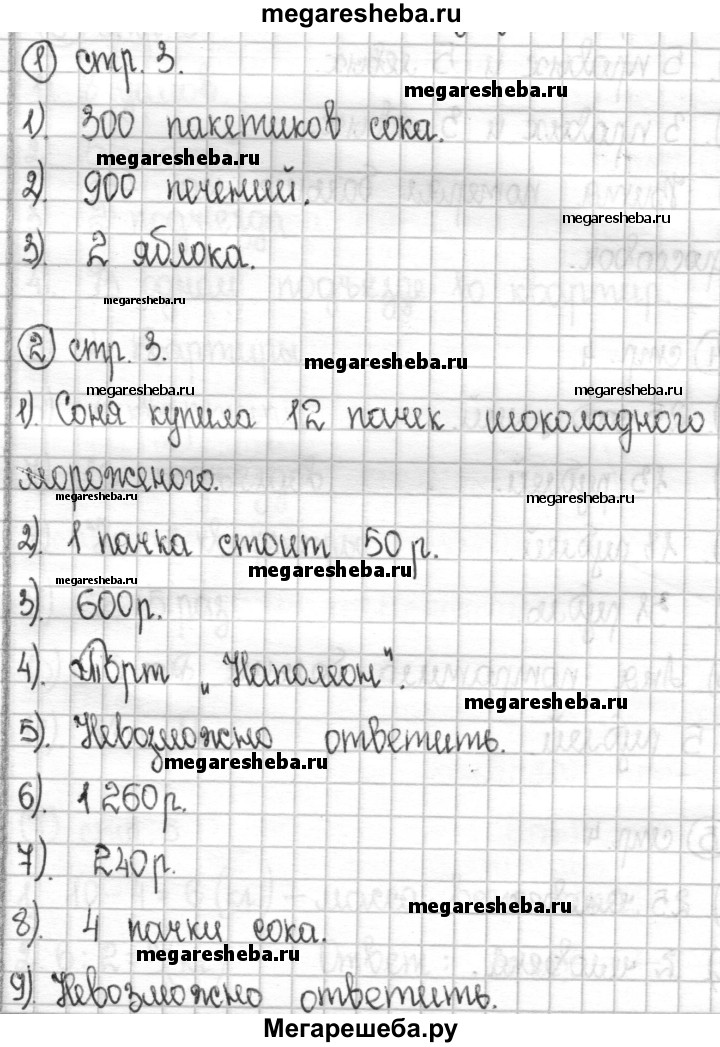 megaresheba.ru
① стр. 3.
megaresheba.ru
1). 300 пакетиков сока.
megaresheba.ru
2). 900 печений.
megaresheba.ru
3). 2 яблока.
megaresheba.ru
② стр. 3.
megaresheba.ru
megaresheba.ru
megaresheba.ru
1) Соня купила 12 пачек шоколадного
мороженого.
megaresheba.ru
megaresheba.ru
2). 1 пачка стоит 50 р.
megaresheba.ru
megaresheba.ru
3). 600 р.
4). Торт „Наполеон".
megaresheba.ru
5). Невозможно ответить.
megaresheba.ru
6). 1 260 р.
7). 240 р.
megaresheba.ru
8). 4 пачки сока.
megaresheba.ru
9). Невозможно ответить.
Мегарешеба.ру